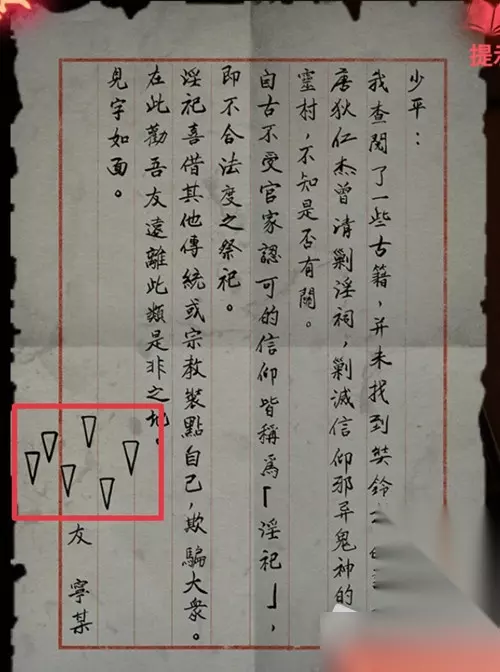 提示
少平：
我查閱了一些古籍，并未找到奘鈴
唐狄仁杰曾清剿淫祠，剿滅信仰邪异鬼神的
村，不知是否有關。
自古不受官家認可的信仰皆稱爲「淫祀」，
即不合法度之祭祀。
淫祀喜借其他傳統或宗教裝點自己，欺騙大衆。
在此勸吾友遠離此類是非之地。
見字如面。
友 寧某